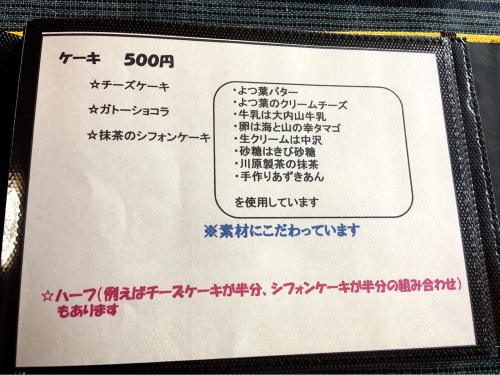 ケーキ 500円
☆チーズケーキ
☆ガトーショコラ
☆抹茶のシフォンケーキ
・よつ葉バター
・よつ葉のクリームチーズ
・牛乳は大内山牛乳
・卵は海と山の幸タマゴ
・生クリームは中沢
・砂糖はきび砂糖
・川原製茶の抹茶
・手作りあずきあん
を使用しています
※素材にこだわっています
☆ハーフ(例えばチーズケーキが半分、シフォンケーキが半分の組み合わせ)
もあります